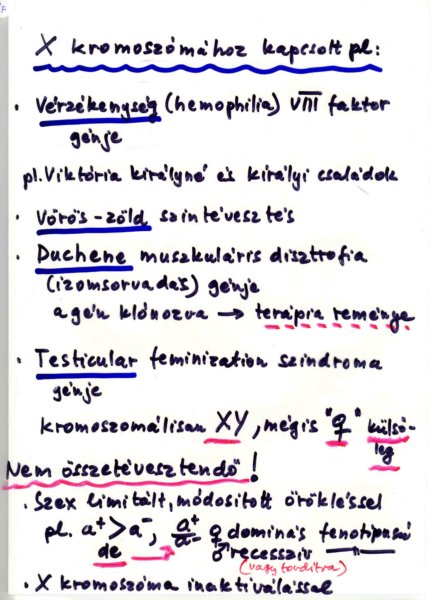 X kromoszómához kapcsolt pl:
• Vérzékenység (hemophilia) VIII faktor
génje
pl. Viktória királyné és királyi családok
• Vörös-zöld színtévesztés
• Duchene muszkuláris disztrofia
(izomsorvadás) génje
a gén klónozva → terápia reménye
• Testicular feminization szindroma
génje
kromoszomálisan XY, mégis "♀" külső-
leg
Nem összetévesztendő!
• Szex limitált, módosított örökléssel
pl. a⁺>a⁻, a⁺/a⁻ ♀ domináns fenotipusú
de → ♂ recesszív —"—
(vagy fordítva)
• X kromoszóma inaktiválással